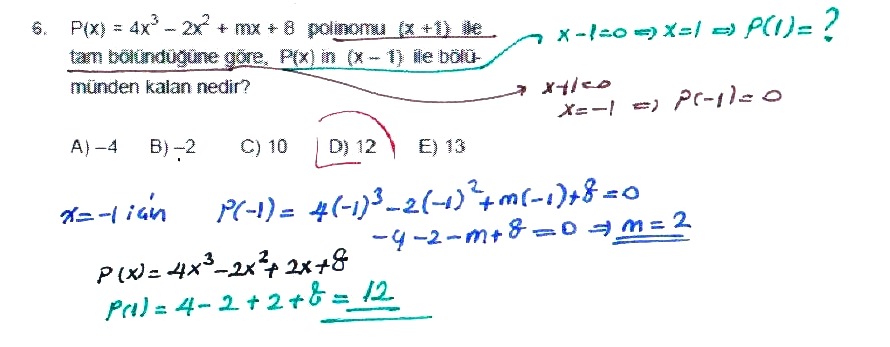 6. P(x) = 4x³ – 2x² + mx + 8 polinomu (x +1) ile
tam bölündüğüne göre, P(x) in (x – 1) ile bölü-
münden kalan nedir?
x-1=0 ⇒ x=1 ⇒ P(1)= ?
x+1=0
x=-1 ⇒ P(-1)=0
A) –4 B) –2 C) 10 D) 12 E) 13
x=-1 için P(-1)= 4(-1)³-2(-1)²+m(-1)+8=0
-4-2-m+8=0 ⇒ m=2
P(x)=4x³-2x²+2x+8
P(1)=4-2+2+8=12